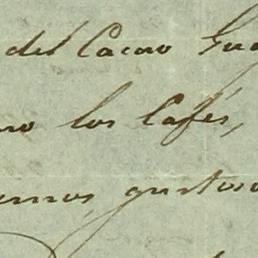 del Cacao Gua
mo los Cafés,
emos gustoso